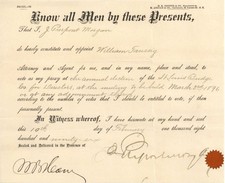 Know all Men by these Presents,
That I, J. Pierpont Morgan
do hereby constitute and appoint William Taussig
Attorney and Agent for me, and in my name, place and stead, to
vote as my proxy at the annual election of the St. Louis Bridge
Co for Directors at the meeting to be held March 2nd 1896
or at any adjournment thereof
according to the number of votes that I should be entitled to vote, if then
personally present.
In Witness whereof, I have hereunto set my hand and seal
this 10th day of February one thousand eight
hundred and ninety six
Sealed and Delivered in the Presence of